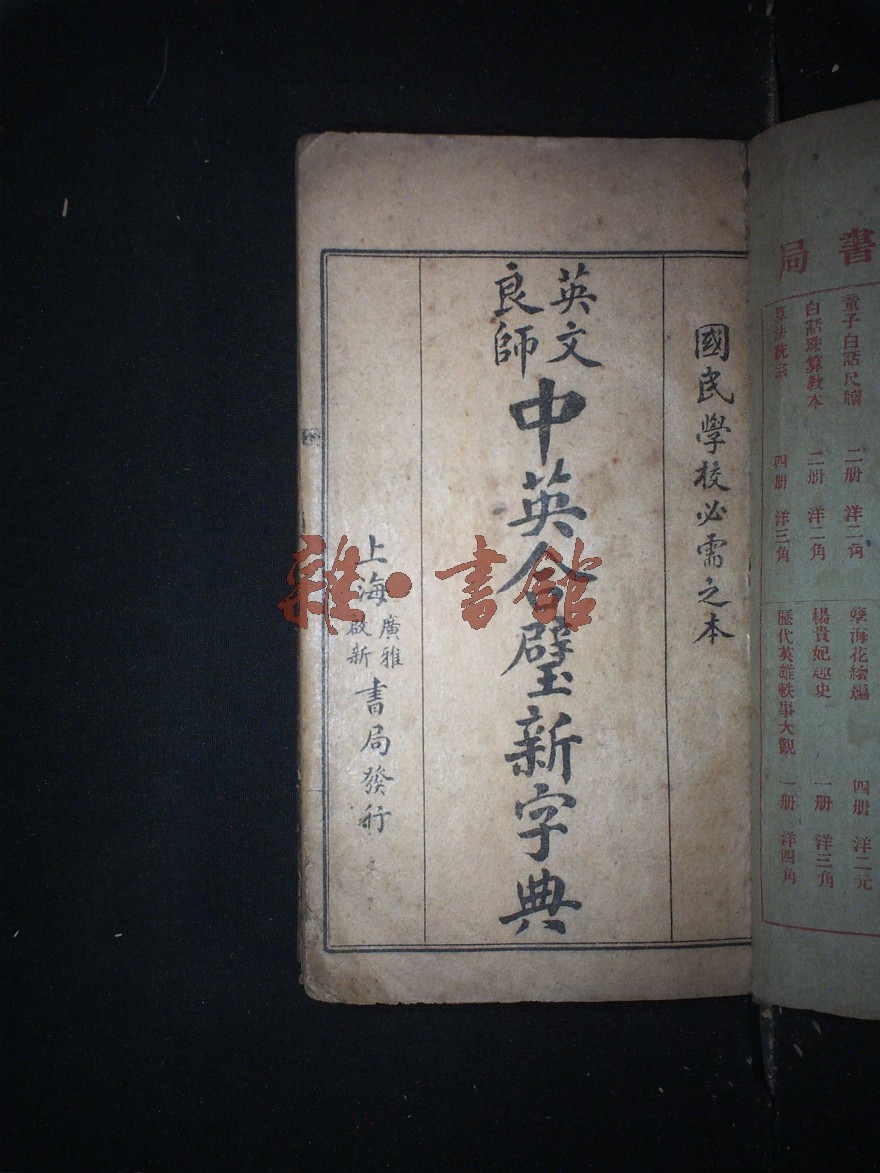 書局
童子白話尺牘 二册 洋二角
白話珠算教本 二册 洋二角
算法統宗 四册 洋三角
孽海花續編 四册 洋二元
楊貴妃趣史 一册 洋三角
歷代英雄軼事大觀 一册 洋四角
國民學校必需之本
英文
良師
中英合璧新字典
上海
廣雅
啟新
書局發行
雜·書館